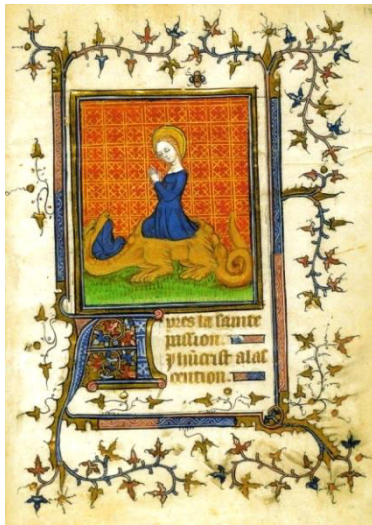 Apres la sainte
passion.
yhūcrist alas
cention.